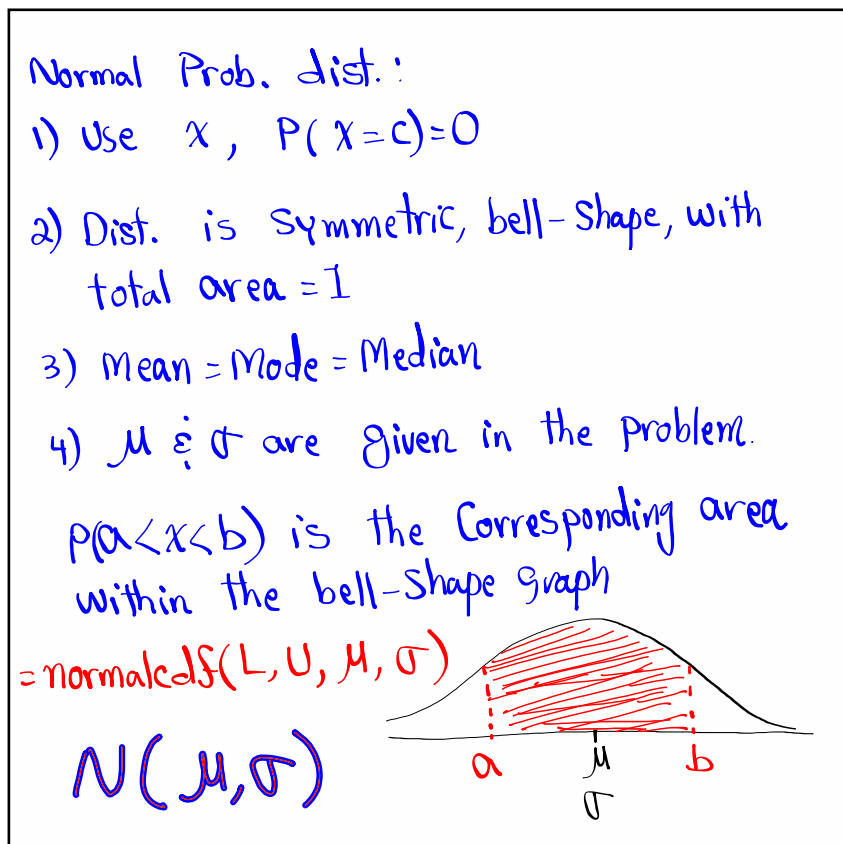 Normal Prob. dist.:
1) Use x, P(x=c)=0
2) Dist. is Symmetric, bell-Shape, with
total area = 1
3) Mean = Mode = Median
4) μ & σ are given in the problem.
P(a<x<b) is the Corresponding area
within the bell-Shape Graph
=normalcdf(L, U, μ, σ)
N(μ,σ)
a μ b
σ